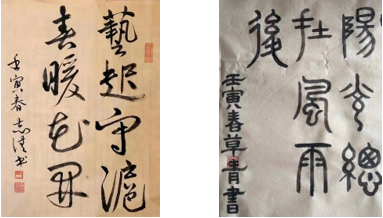 藝起守滬
春暖花開
壬寅春志清书
陽光總
在風雨
後
壬寅春草青書